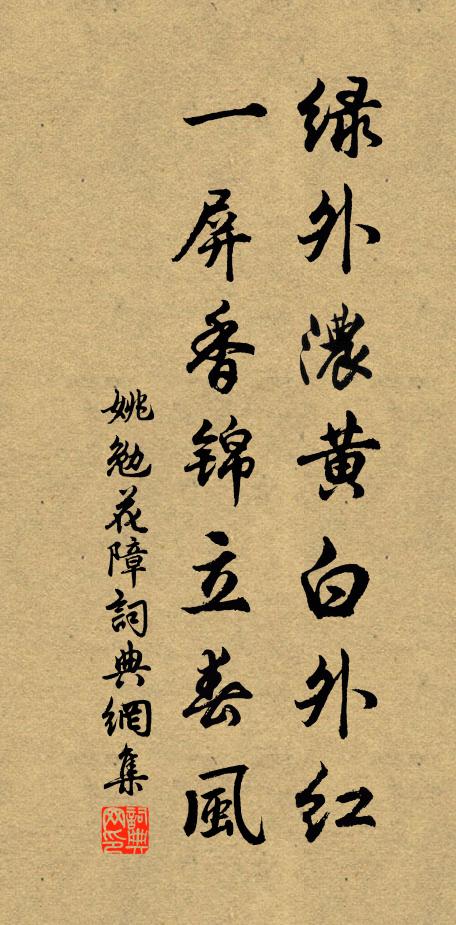 绿外濃黄白外红
一屏香锦立春風
姚勉花障詞典網集
詞典网印